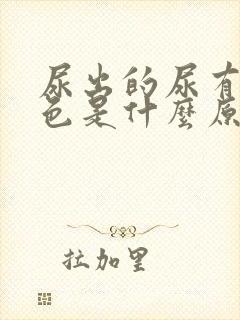 尿出的尿有
色是什麼原
拉加里